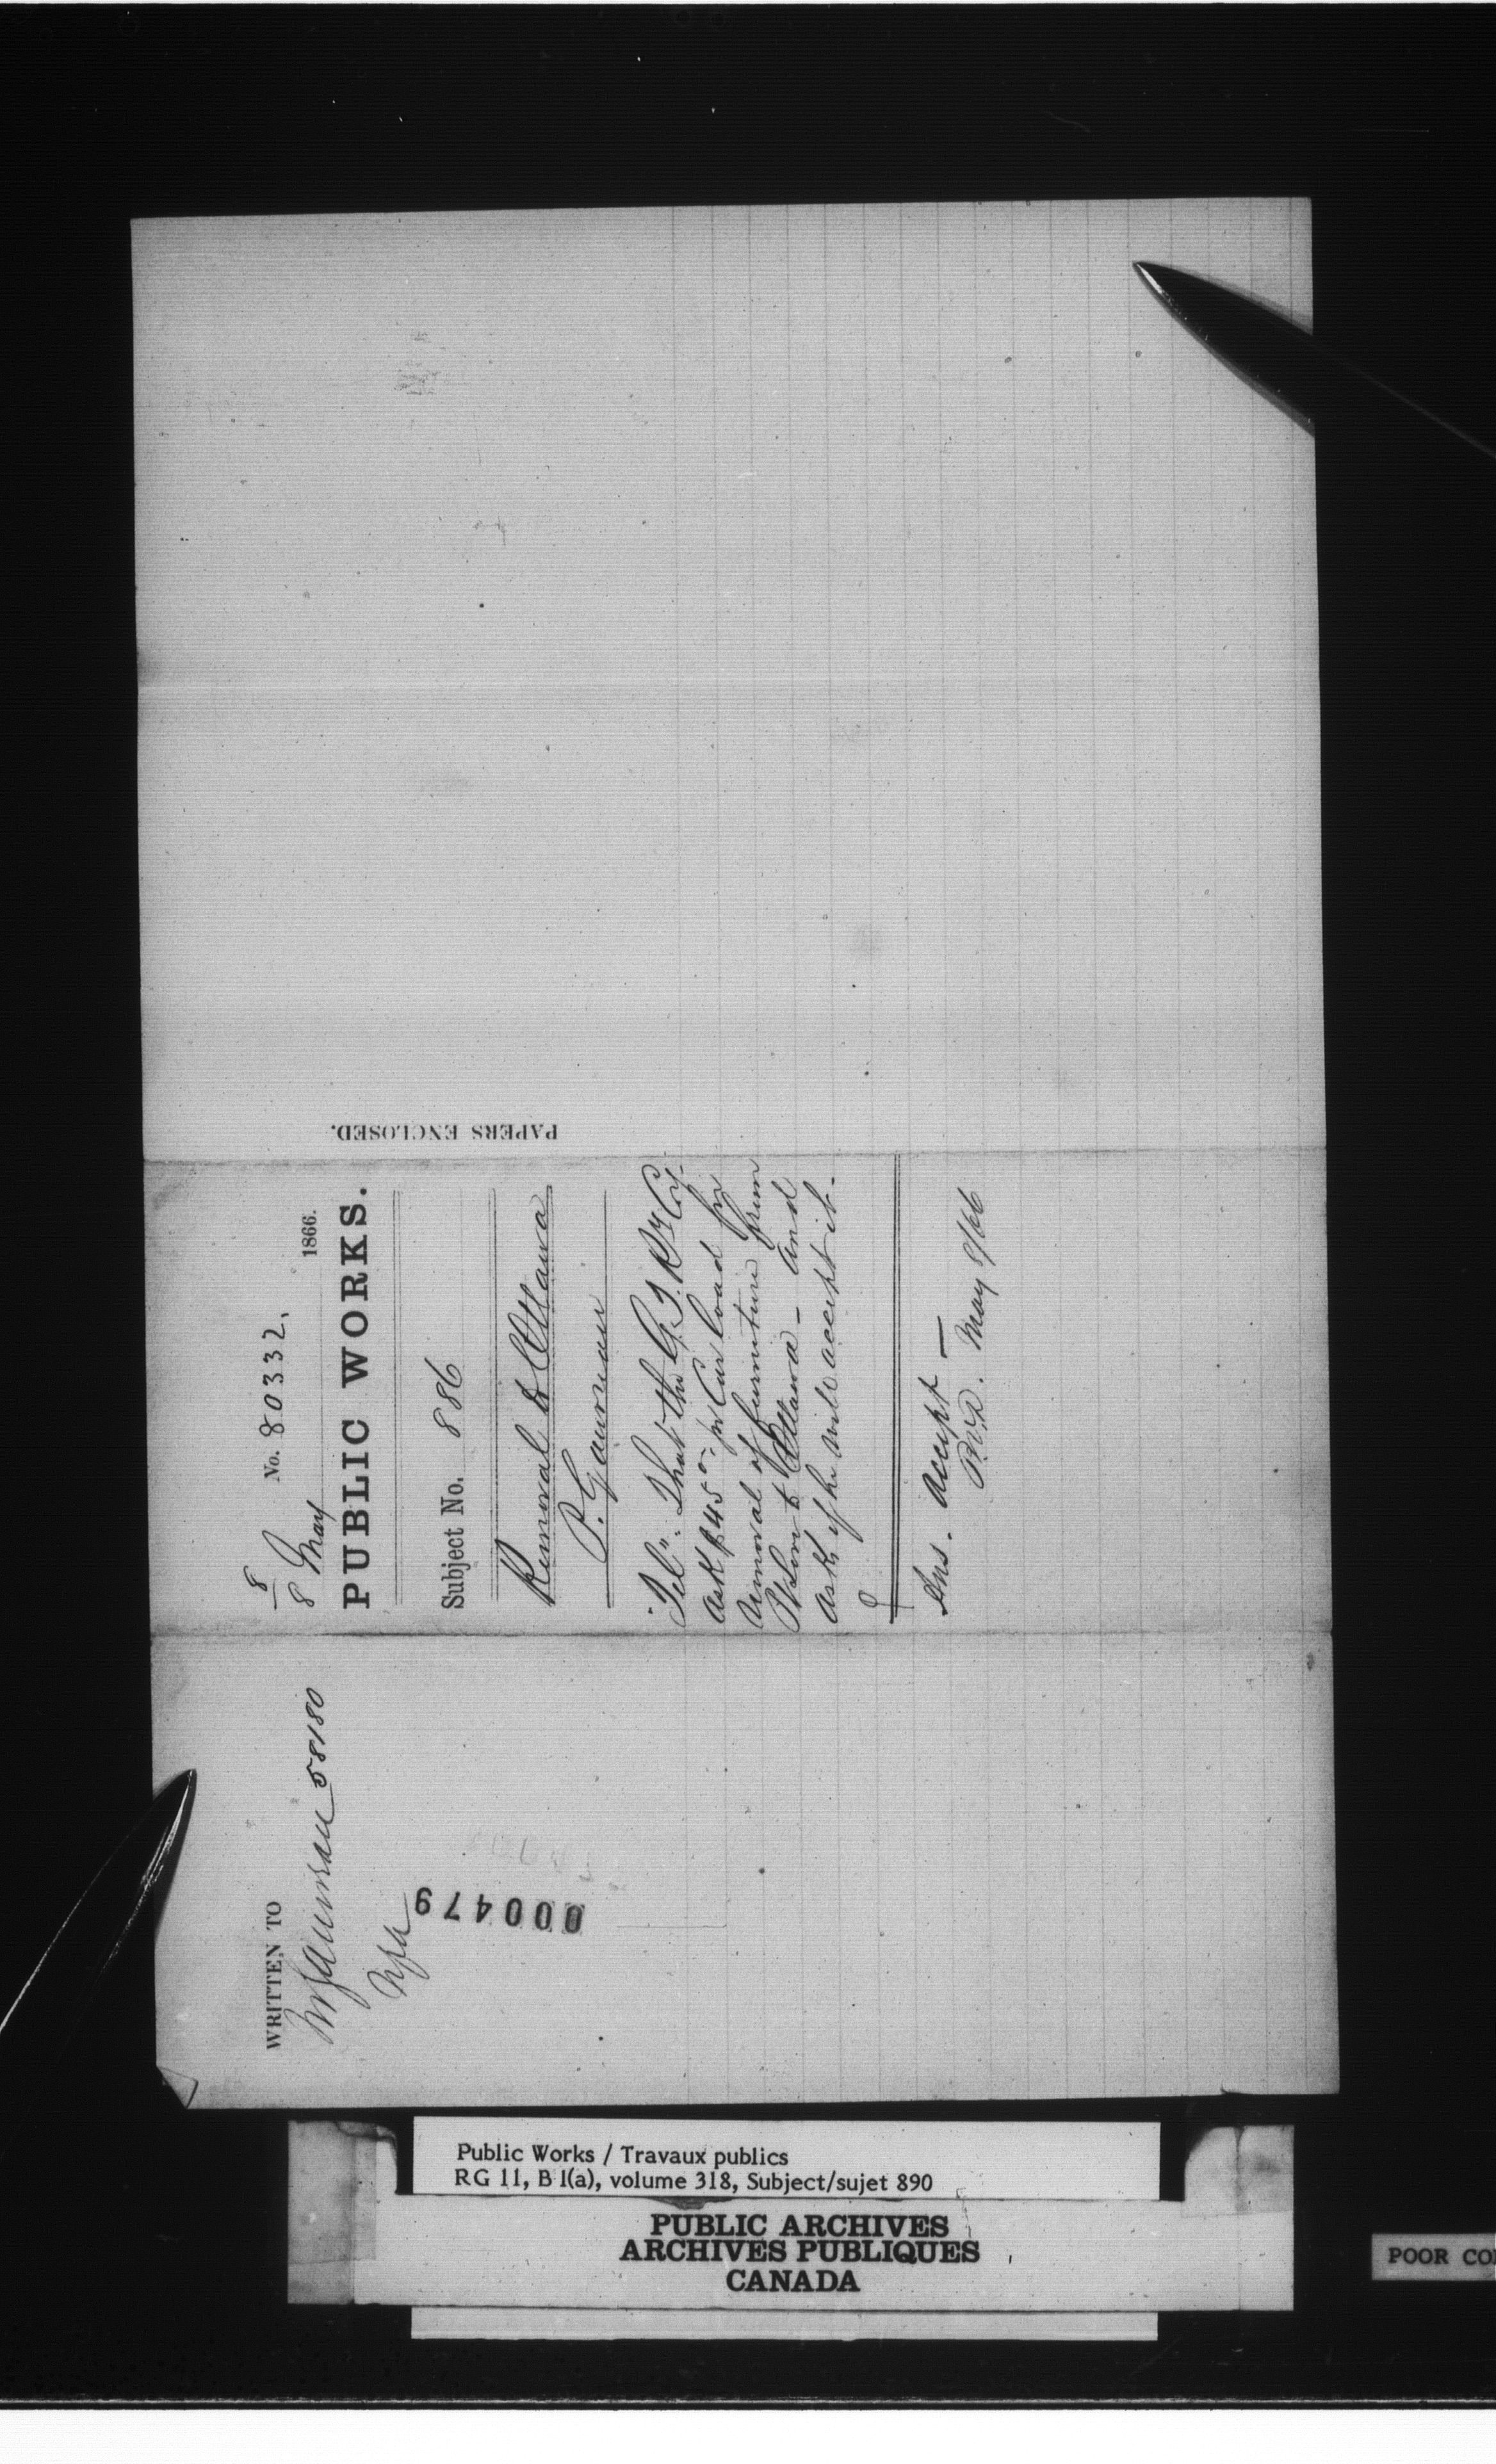 8
No. 80332.
8 May 1866.
PUBLIC WORKS.
Subject No. 886
Removal to Ottawa
P. Gauvreau
Telm. That the G. T. Ry Coy.
ask $45 00 pr Car load for
removal of furniture from
to Ottawa — and
ask if he will accept it.
Ans. accept —
May 8/66
PAPERS ENCLOSED.
WRITTEN TO
Mr Gauvreau 58180
000479
Public Works / Travaux publics
RG 11, B 1(a), volume 318, Subject/sujet 890
PUBLIC ARCHIVES
ARCHIVES PUBLIQUES
CANADA
POOR CO